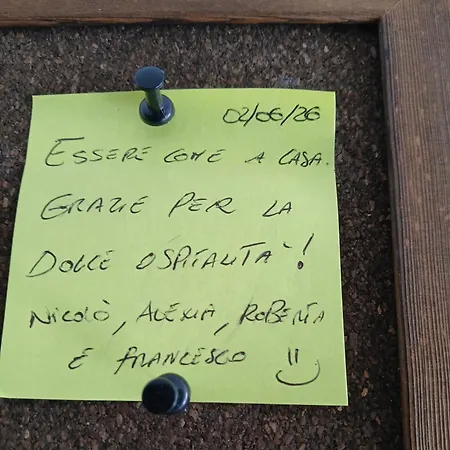 02/06/26
ESSERE COME A CASA.
GRAZIE PER LA
DOLCE OSPITALITA'!
NICOLÒ, ALEXIA, ROBERTA
E FRANCESCO